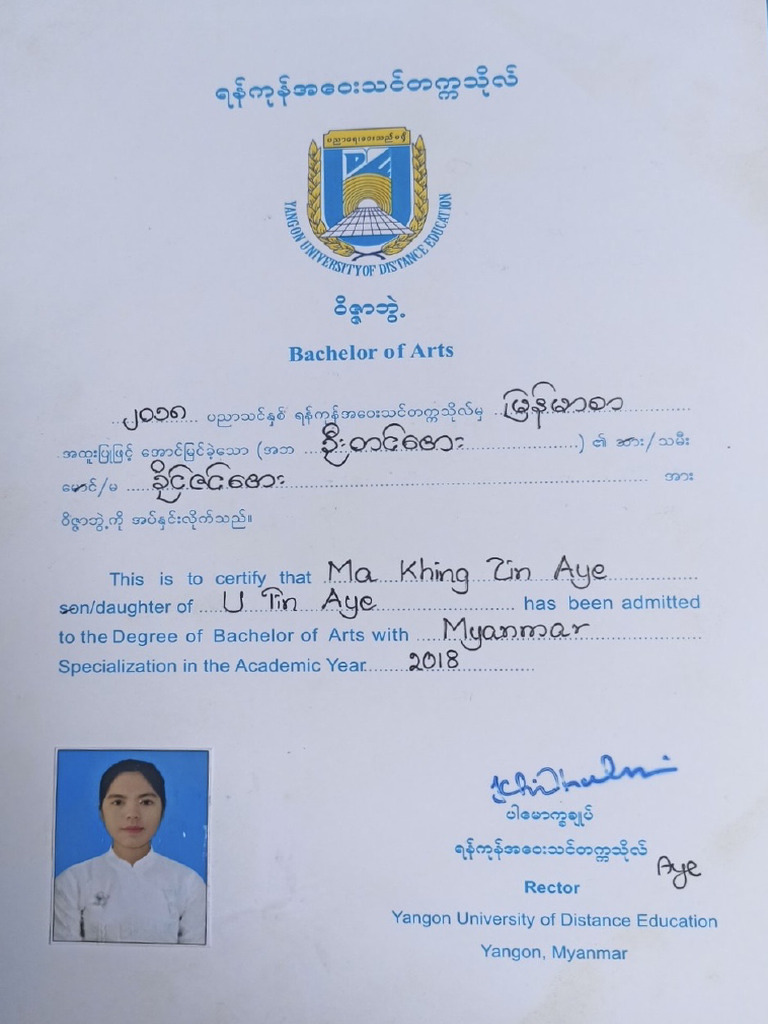 ရန်ကုန်အဝေးသင်တက္ကသိုလ်
DE
YANGON UNIVERSITY OF DISTANCE EDUCATION
ဝိဇ္ဇာဘွဲ့
Bachelor of Arts
၂၀၁၈ ပညာသင်နှစ် ရန်ကုန်အဝေးသင်တက္ကသိုလ်မှ မြန်မာစာ
အထူးပြုဖြင့် အောင်မြင်ခဲ့သော (အဘ ဦးတင်အေး) ၏ သား/သမီး
မောင်/မ ခိုင်ဇင်အေး အား
ဝိဇ္ဇာဘွဲ့ကို အပ်နှင်းလိုက်သည်။
This is to certify that Ma Khing Zin Aye
son/daughter of U Tin Aye has been admitted
to the Degree of Bachelor of Arts with Myanmar
Specialization in the Academic Year 2018
ပါမောက္ခချုပ်
ရန်ကုန်အဝေးသင်တက္ကသိုလ်
Aye
Rector
Yangon University of Distance Education
Yangon, Myanmar